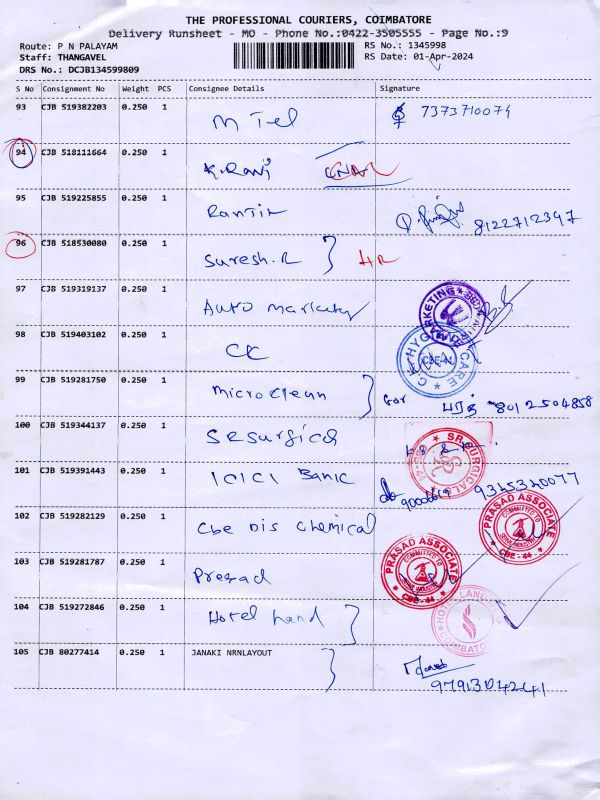 THE PROFESSIONAL COURIERS, COIMBATORE
Delivery Runsheet - MO - Phone No.:0422-3505555 - Page No.:9
Route: P N PALAYAM RS No.: 1345998
Staff: THANGAVEL RS Date: 01-Apr-2024
DRS No.: DCJB134599809
S No Consignment No Weight PCS Consignee Details Signature
93 CJB 519382203 0.250 1 M Tel 7373710074
94 CJB 518111664 0.250 1 K.Rani
95 CJB 519225855 0.250 1 8122712397
96 CJB 518530080 0.250 1 Suresh.R HR
97 CJB 519319137 0.250 1 Auto
98 CJB 519403102 0.250 1 CK
99 CJB 519281750 0.250 1 Microclean 8012504858
100 CJB 519344137 0.250 1 SRSurgical SR SURGICALS
101 CJB 519391443 0.250 1 ICICI Bank 9345340077
102 CJB 519282129 0.250 1 Cbe Dis Chemical PRASAD ASSOCIATE COMMITTED TO CBE - 44
103 CJB 519281787 0.250 1 Presad PRASAD ASSOCIATE COMMITTED TO CBE - 44
104 CJB 519272846 0.250 1 Hotel Land
105 CJB 80277414 0.250 1 JANAKI NRNLAYOUT